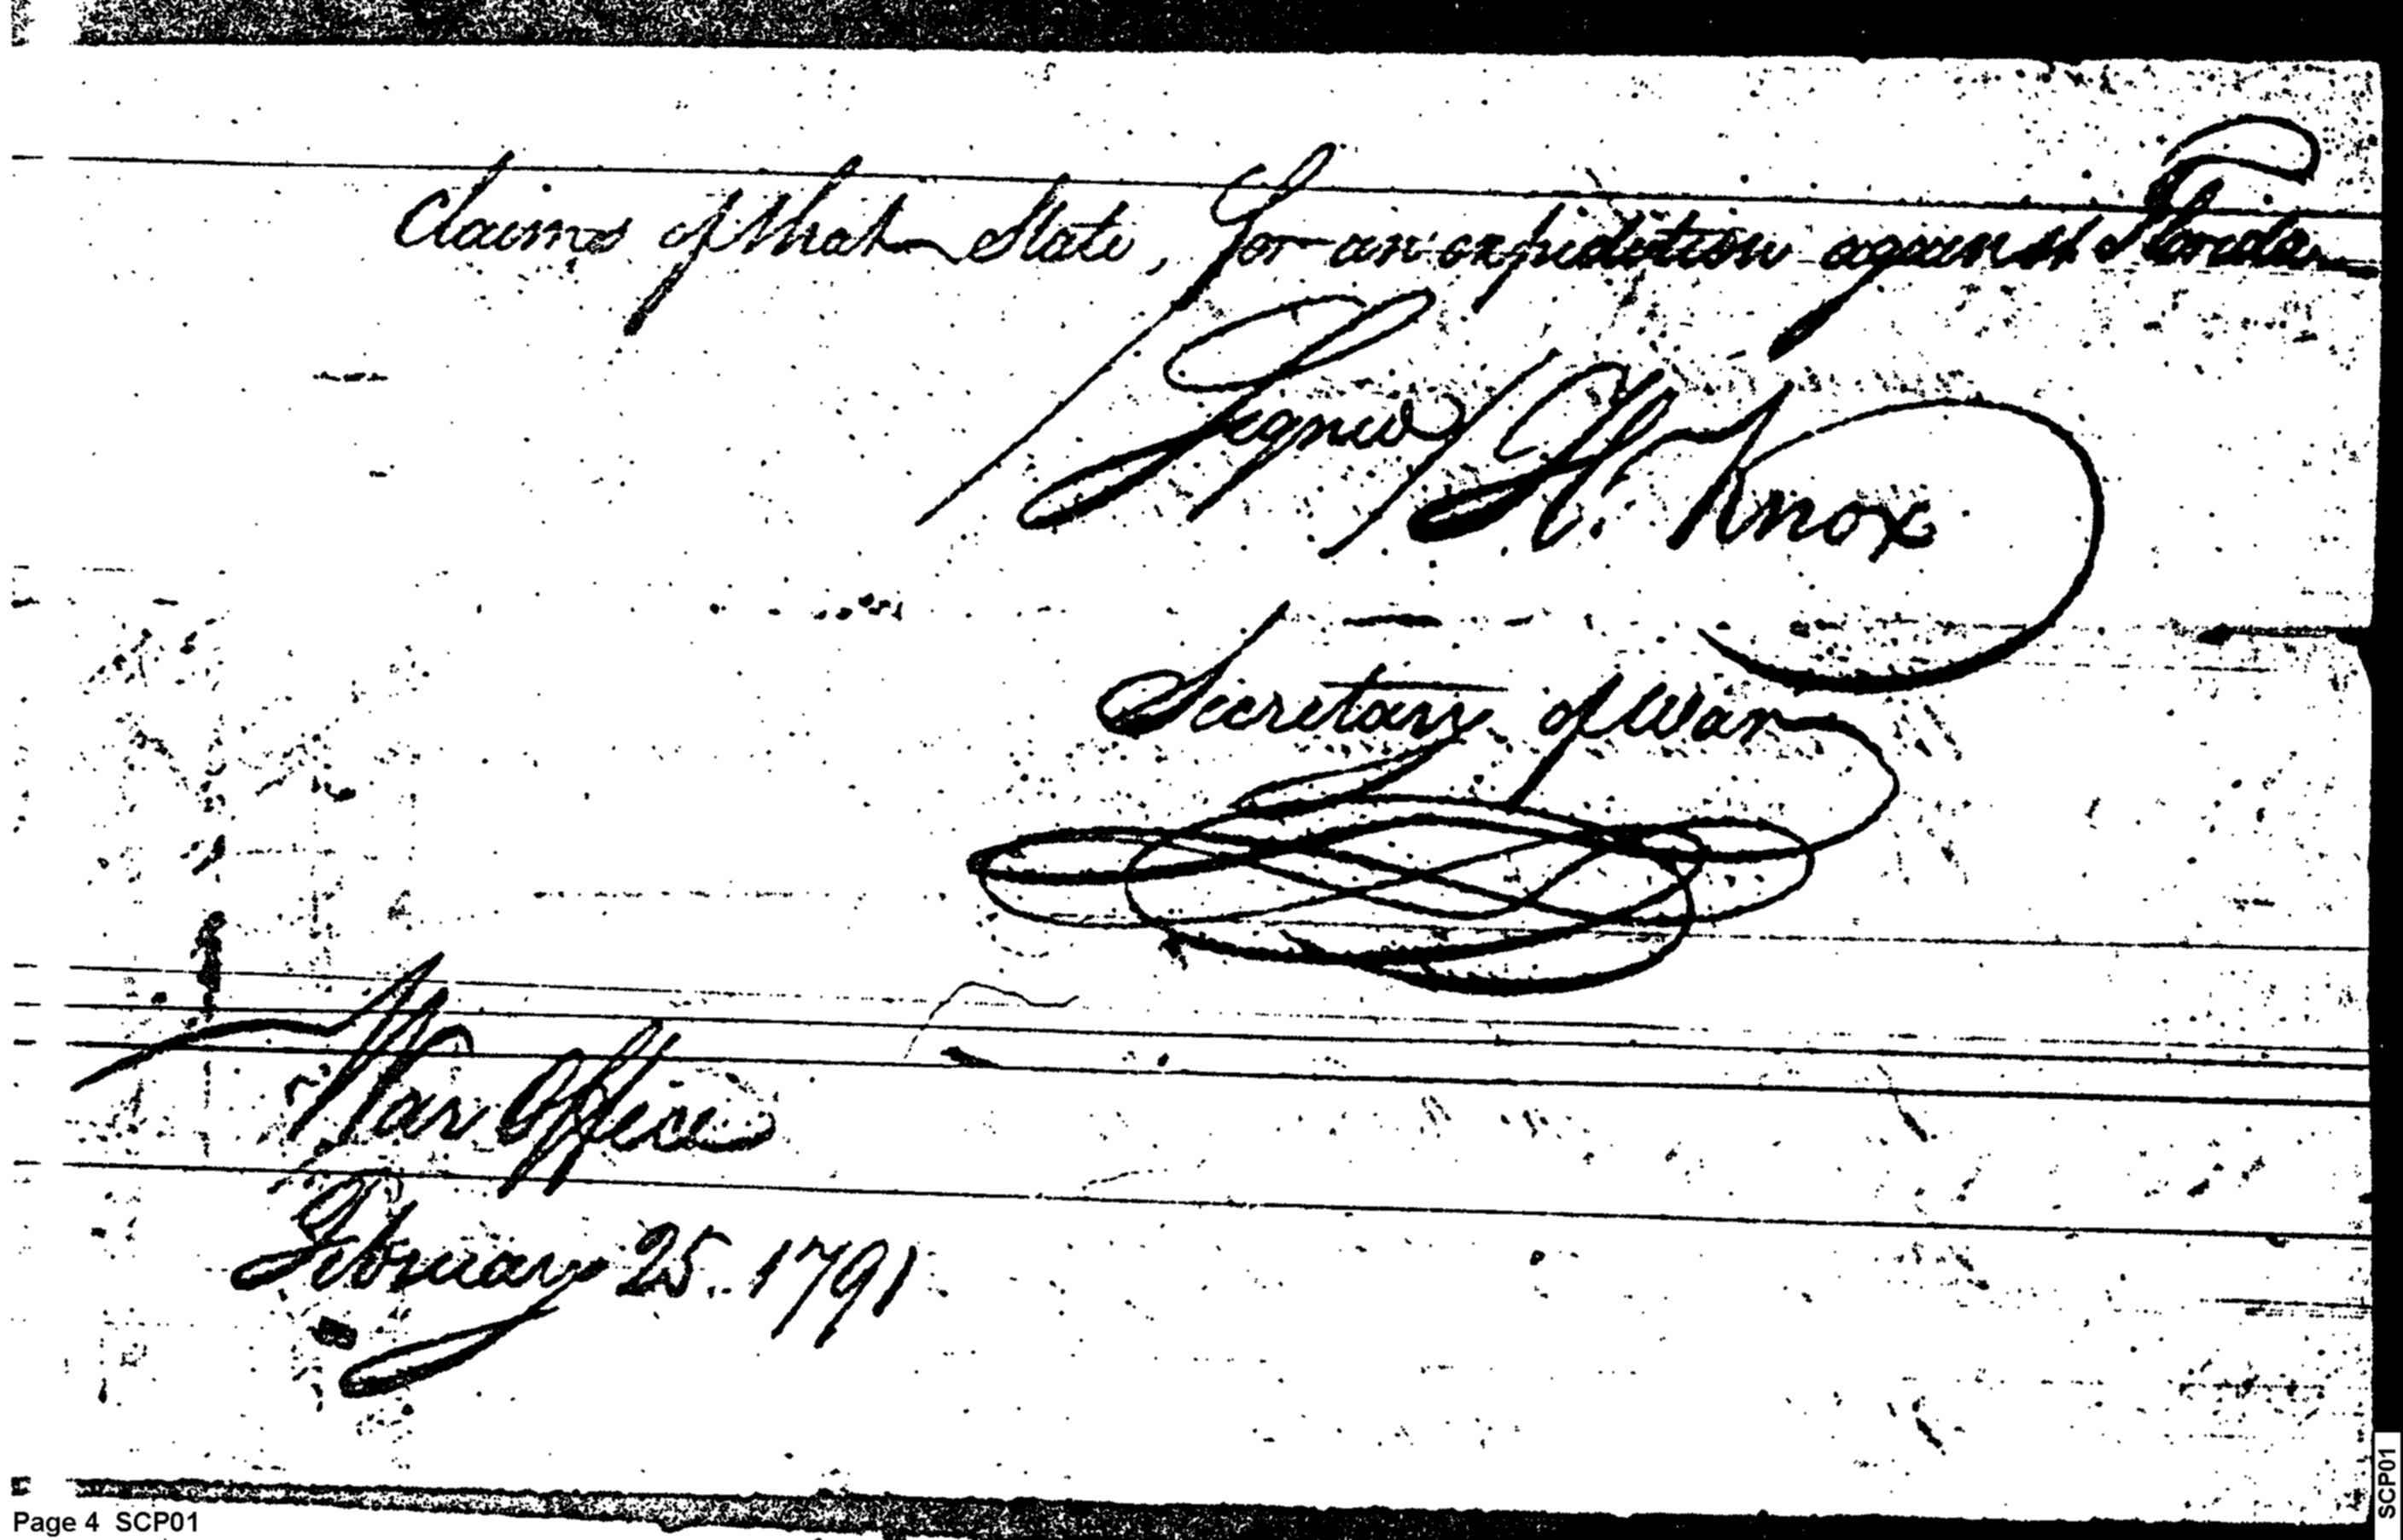 Claims of that State, for an expedition against Florida
Signed/ H. Knox
Secretary of War
War Office
February 25. 1791
Page 4 SCP01
SCP01